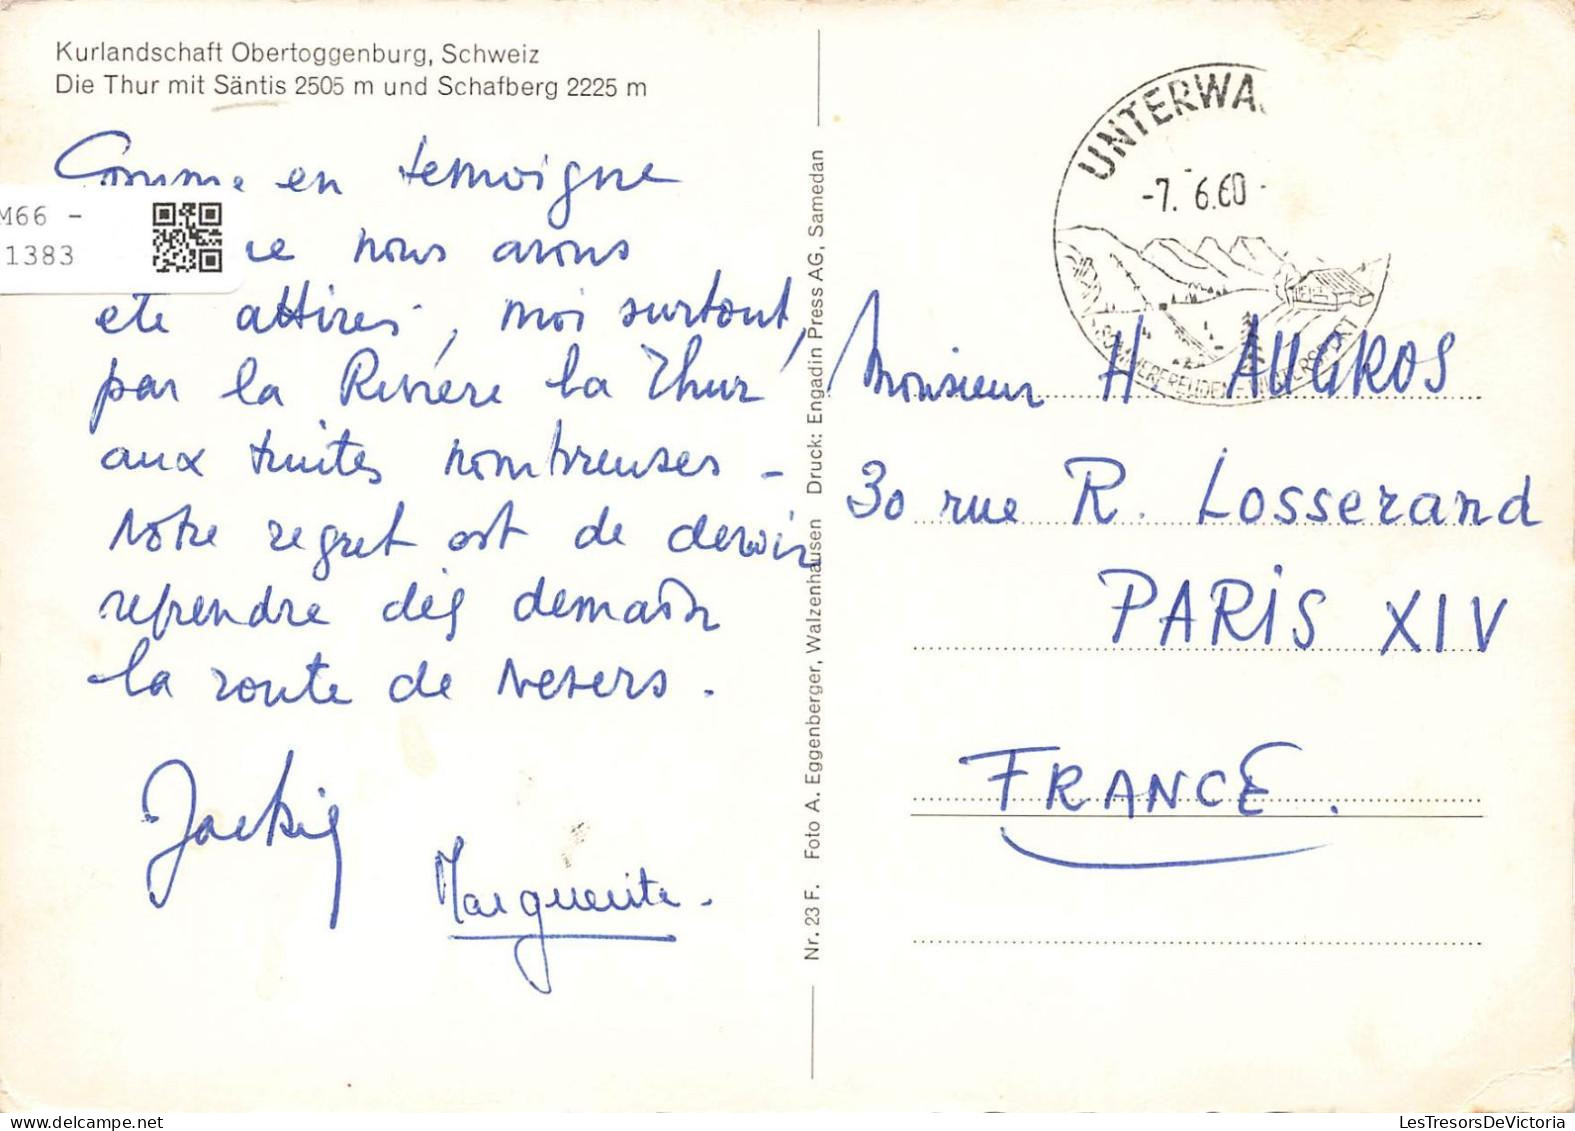 Kurlandschaft Obertoggenburg, Schweiz
Die Thur mit Säntis 2505 m und Schafberg 2225 m
Comme en temoigne
M66 -
1383
ce nous avons
ete attires, moi surtout,
par la Rivière la Thur
aux truites nombreuses -
Notre regret est de devoir
reprendre dès demain
la route de
Jackie
Marguerite.
Nr. 23 F. Foto A. Eggenberger, Walzenhausen Druck: Engadin Press AG, Samedan
UNTERWA
-7. 6.60 -
SOMMERFREUDEN - WINTERSPORT
Monsieur H. AUGROS
30 rue R. Losserand
PARIS XIV
FRANCE.
LesTresorsDeVictoria